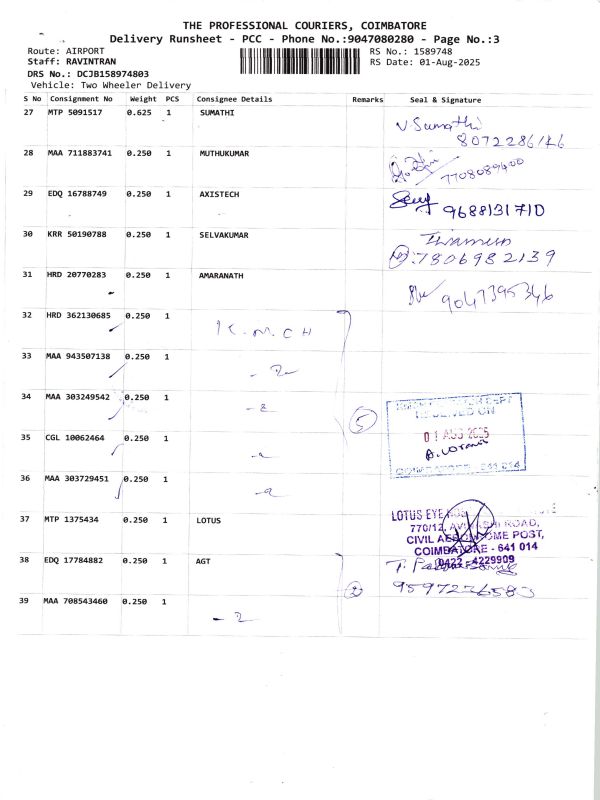 THE PROFESSIONAL COURIERS, COIMBATORE
Delivery Runsheet - PCC - Phone No.:9047080280 - Page No.:3
Route: AIRPORT RS No.: 1589748
Staff: RAVINTRAN RS Date: 01-Aug-2025
DRS No.: DCJB158974803
Vehicle: Two Wheeler Delivery
S No Consignment No Weight PCS Consignee Details Remarks Seal & Signature
27 MTP 5091517 0.625 1 SUMATHI V Sumathi
8072286146
28 MAA 711883741 0.250 1 MUTHUKUMAR
7708089400
29 EDQ 16788749 0.250 1 AXISTECH
9688131710
30 KRR 50190788 0.250 1 SELVAKUMAR
7806982139
31 HRD 20770283 0.250 1 AMARANATH
9047395346
32 HRD 362130685 0.250 1 K.M.C.H
33 MAA 943507138 0.250 1
34 MAA 303249542 0.250 1
5
RECEIVED ON
35 CGL 10062464 0.250 1 01 AUG 2025
COIMBATORE 641 014
36 MAA 303729451 0.250 1
37 MTP 1375434 0.250 1 LOTUS LOTUS EYE
770/12, AVINASHI ROAD,
CIVIL AERODROME POST,
COIMBATORE - 641 014
0422 - 4229909
38 EDQ 17784882 0.250 1 AGT
2 9597236583
39 MAA 708543460 0.250 1